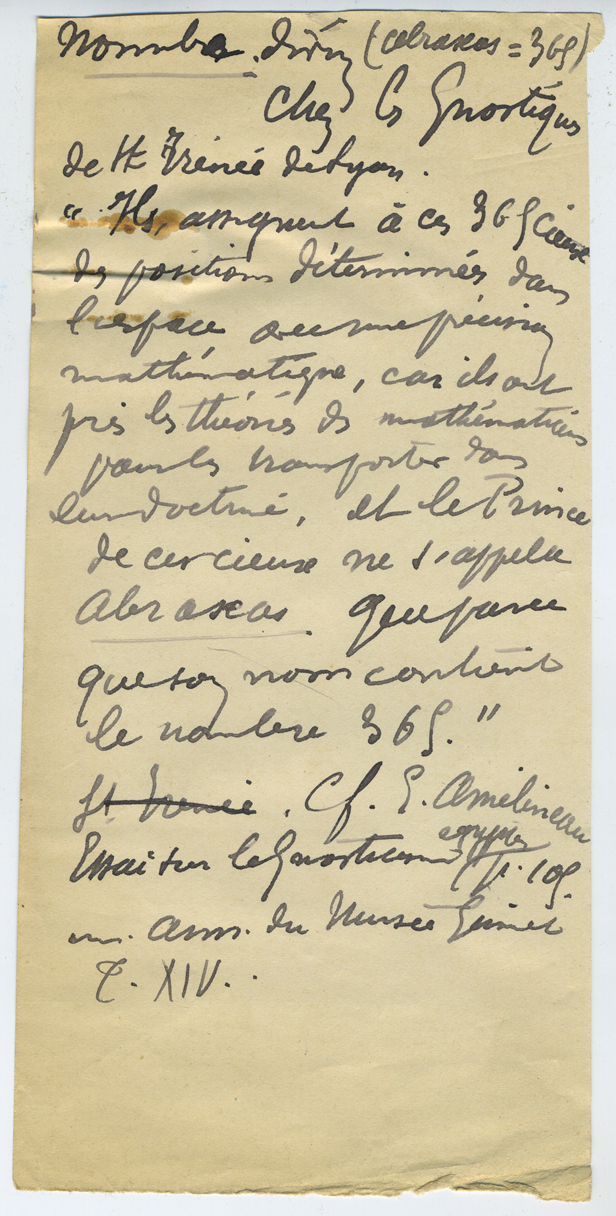 Nombre. divin (abraxas = 365)
Chez les Gnostiques
de St Irénée de Lyon.
"Ils, assignent à ces 365 cieux
des positions déterminées dans
l'espace avec une précision
mathématique, car ils ont
pris les théories des mathématiciens
pour les transporter dans
leur doctrine, et le Prince
de ces cieux ne s'appela
Abraxas que parce
que son nom contient
le nombre 365."
St Irénée. Cf. E. Amélineau
Essai sur le Gnosticisme égyptien p. 109.
Ann. du Musée Guimet
T. XIV.